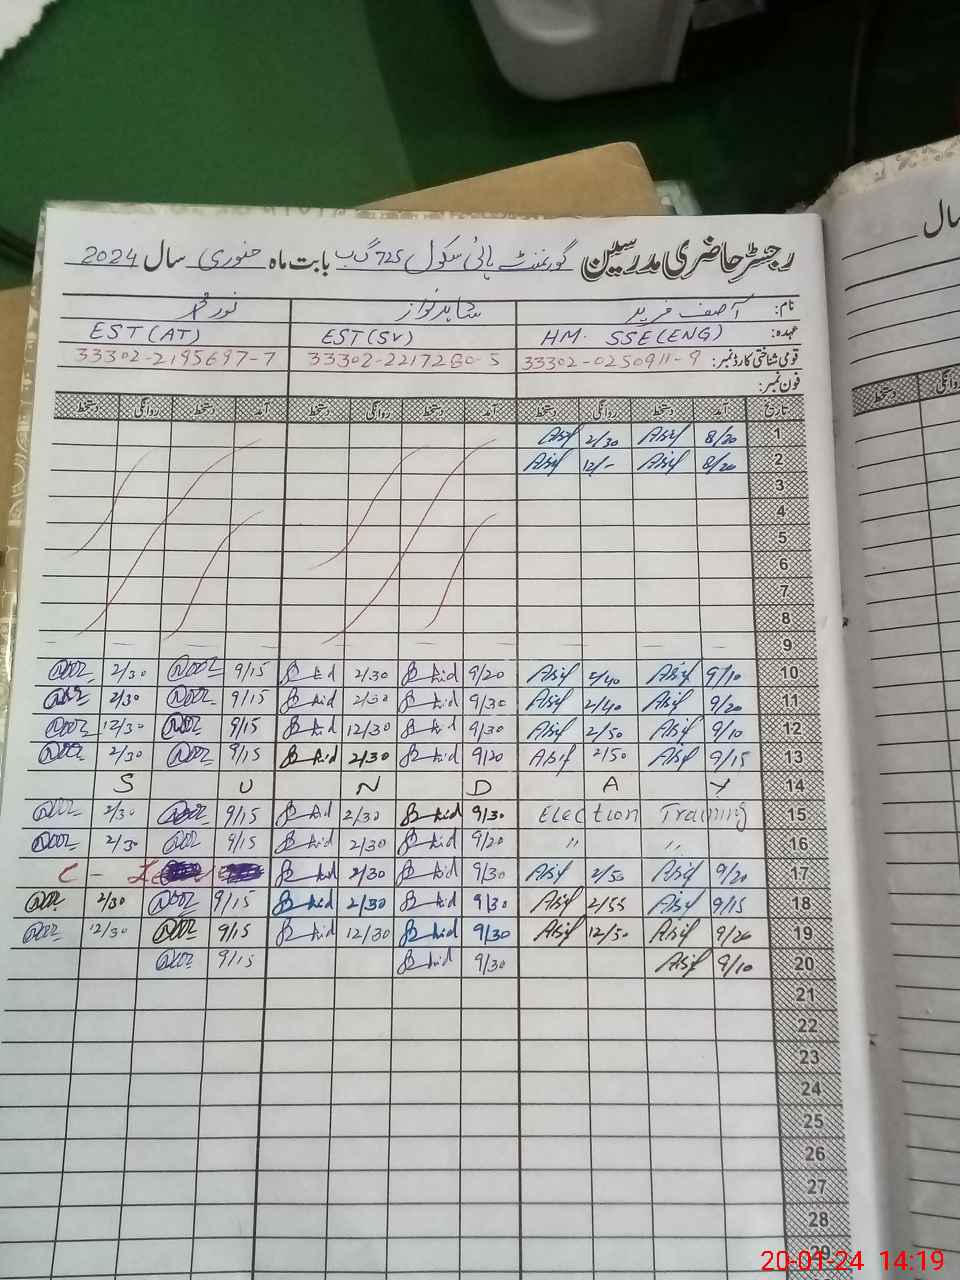 رجسٹر حاضری مدرسین گورنمنٹ ہائی سکول 725 گ ب بابت ماہ جنوری سال 2024
نام: آصف فرید شاہد نواز نور محمد
عہدہ: HM. SSE(ENG) EST(SV) EST(AT)
قومی شناختی کارڈ نمبر: 33302-0250911-9 33302-2217280-5 33302-2195697-7
فون نمبر:
تاریخ آمد دستخط روانگی دستخط آمد دستخط روانگی دستخط آمد دستخط روانگی دستخط
1 8/20 Asif 2/30 Asif
2 8/20 Asif 12/- Asif
3
4
5
6
7
8
9
10 9/10 Asif 2/40 Asif 9/20 2/30 9/15 Noor 2/30 Noor
11 9/20 Asif 2/40 Asif 9/30 2/30 9/15 Noor 2/30 Noor
12 9/10 Asif 2/50 Asif 9/30 12/30 9/15 Noor 12/30 Noor
13 9/15 Asif 2/50 Asif 9/20 2/30 9/15 Noor 2/30 Noor
S U N D A Y 14
15 Election Training 9/30 2/30 9/15 Noor 2/30 Noor
16 〃 〃 9/20 2/30 9/15 Noor 2/30 Noor
17 9/20 Asif 2/50 Asif 9/30 2/30 C - Le
18 9/15 Asif 2/55 Asif 9/30 2/30 9/15 Noor 2/30 Noor
19 9/20 Asif 12/50 Asif 9/30 12/30 9/15 Noor 12/30 Noor
20 9/10 Asif 9/30 9/15 Noor
21
22
23
24
25
26
27
28
29
سال
روانگی دستخط
20-01-24 14:19